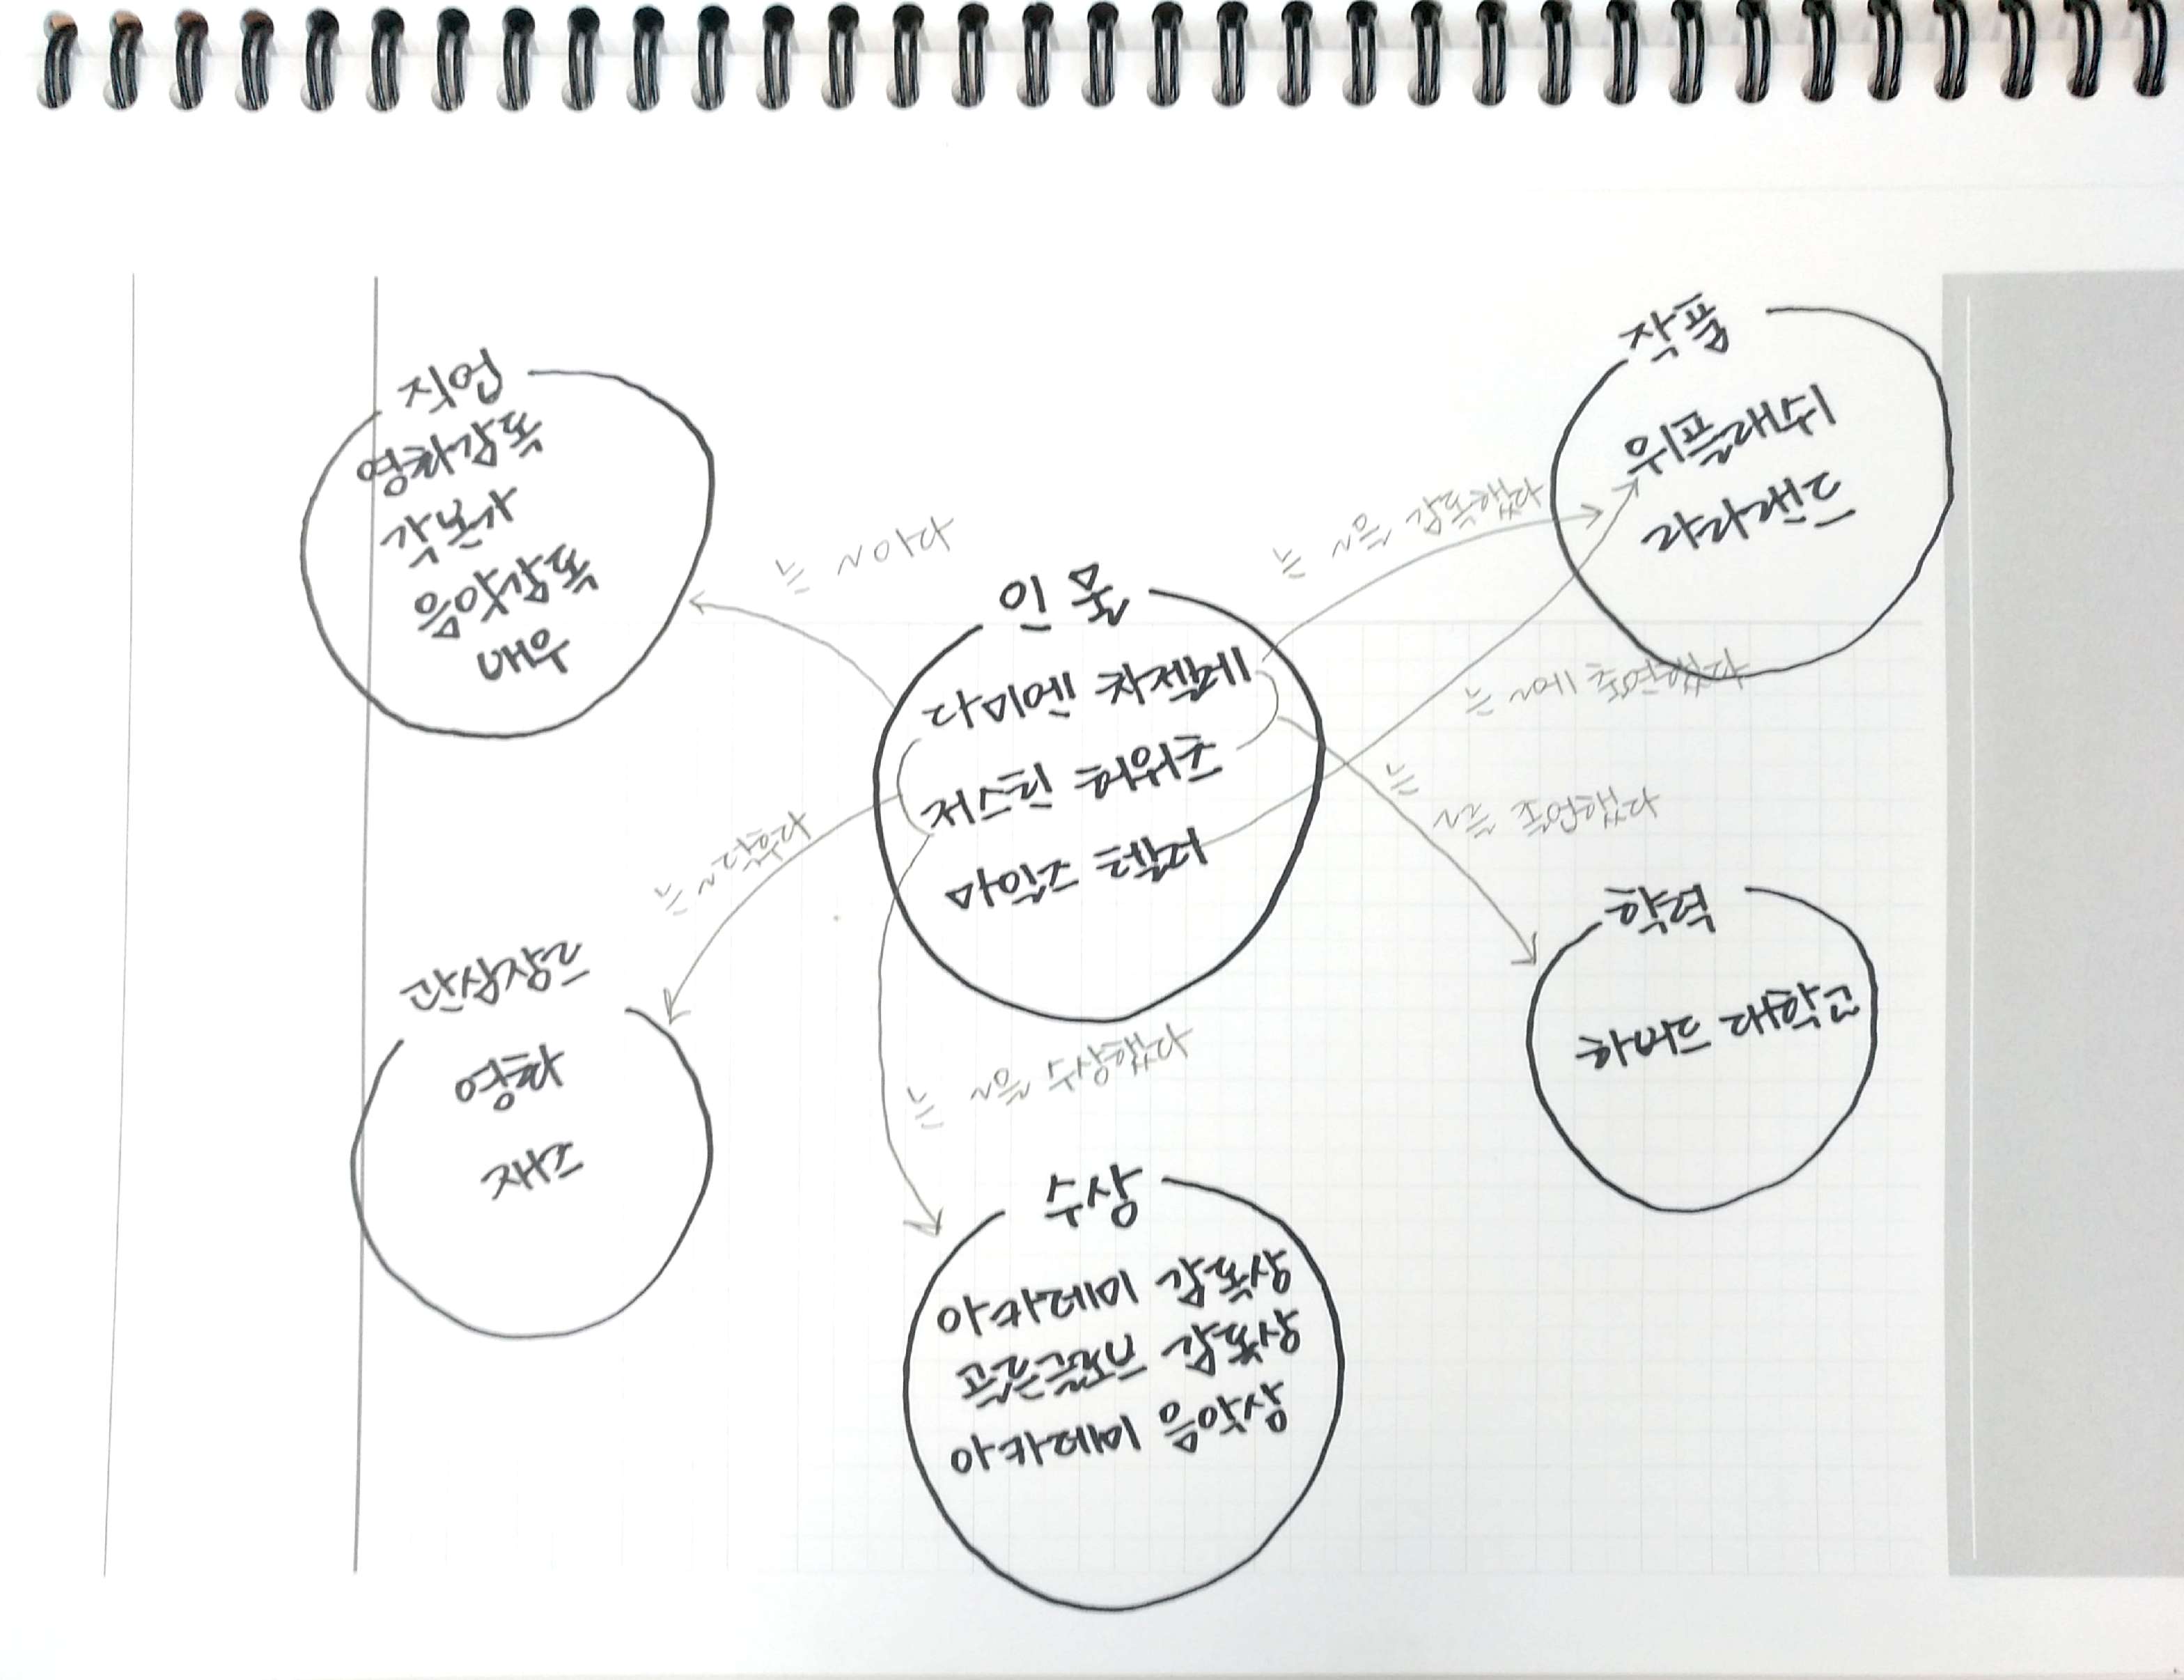 작품
위플래쉬
라라랜드
직업
영화감독
각본가
음악감독
배우
는 ~이다
는 ~을 감독했다
인물
다미엔 차젤레
저스틴 허위츠
마일즈 텔러
는 ~에 출연했다
는
~를 졸업했다
는 ~다룬다
학력
하버드 대학교
관심장르
영화
재즈
는 ~을 수상했다
수상
아카데미 감독상
골든글로브 감독상
아카데미 음악상